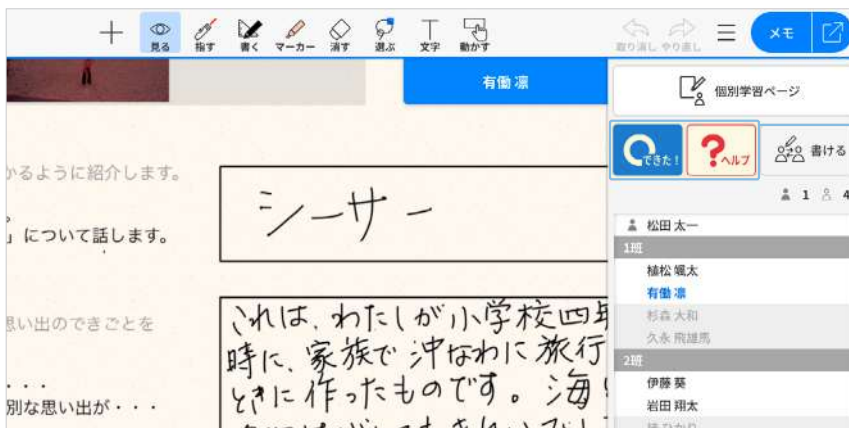 見る
指す
書く
マーカー
消す
選ぶ
文字
動かす
取り消し
やり直し
メモ
有働 凛
個別学習ページ
できた!
ヘルプ
書ける
1
4
かるように紹介します。
」について話します。
思い出のできごとを
・・・
別な思い出が・・・
シーサー
これは、わたしが小学校四年
時に、家族で沖なわに旅行
ときに作ったものです。海
松田 太一
1班
植松 颯太
有働 凛
杉森 大和
久永 飛雄馬
2班
伊藤 葵
岩田 翔太